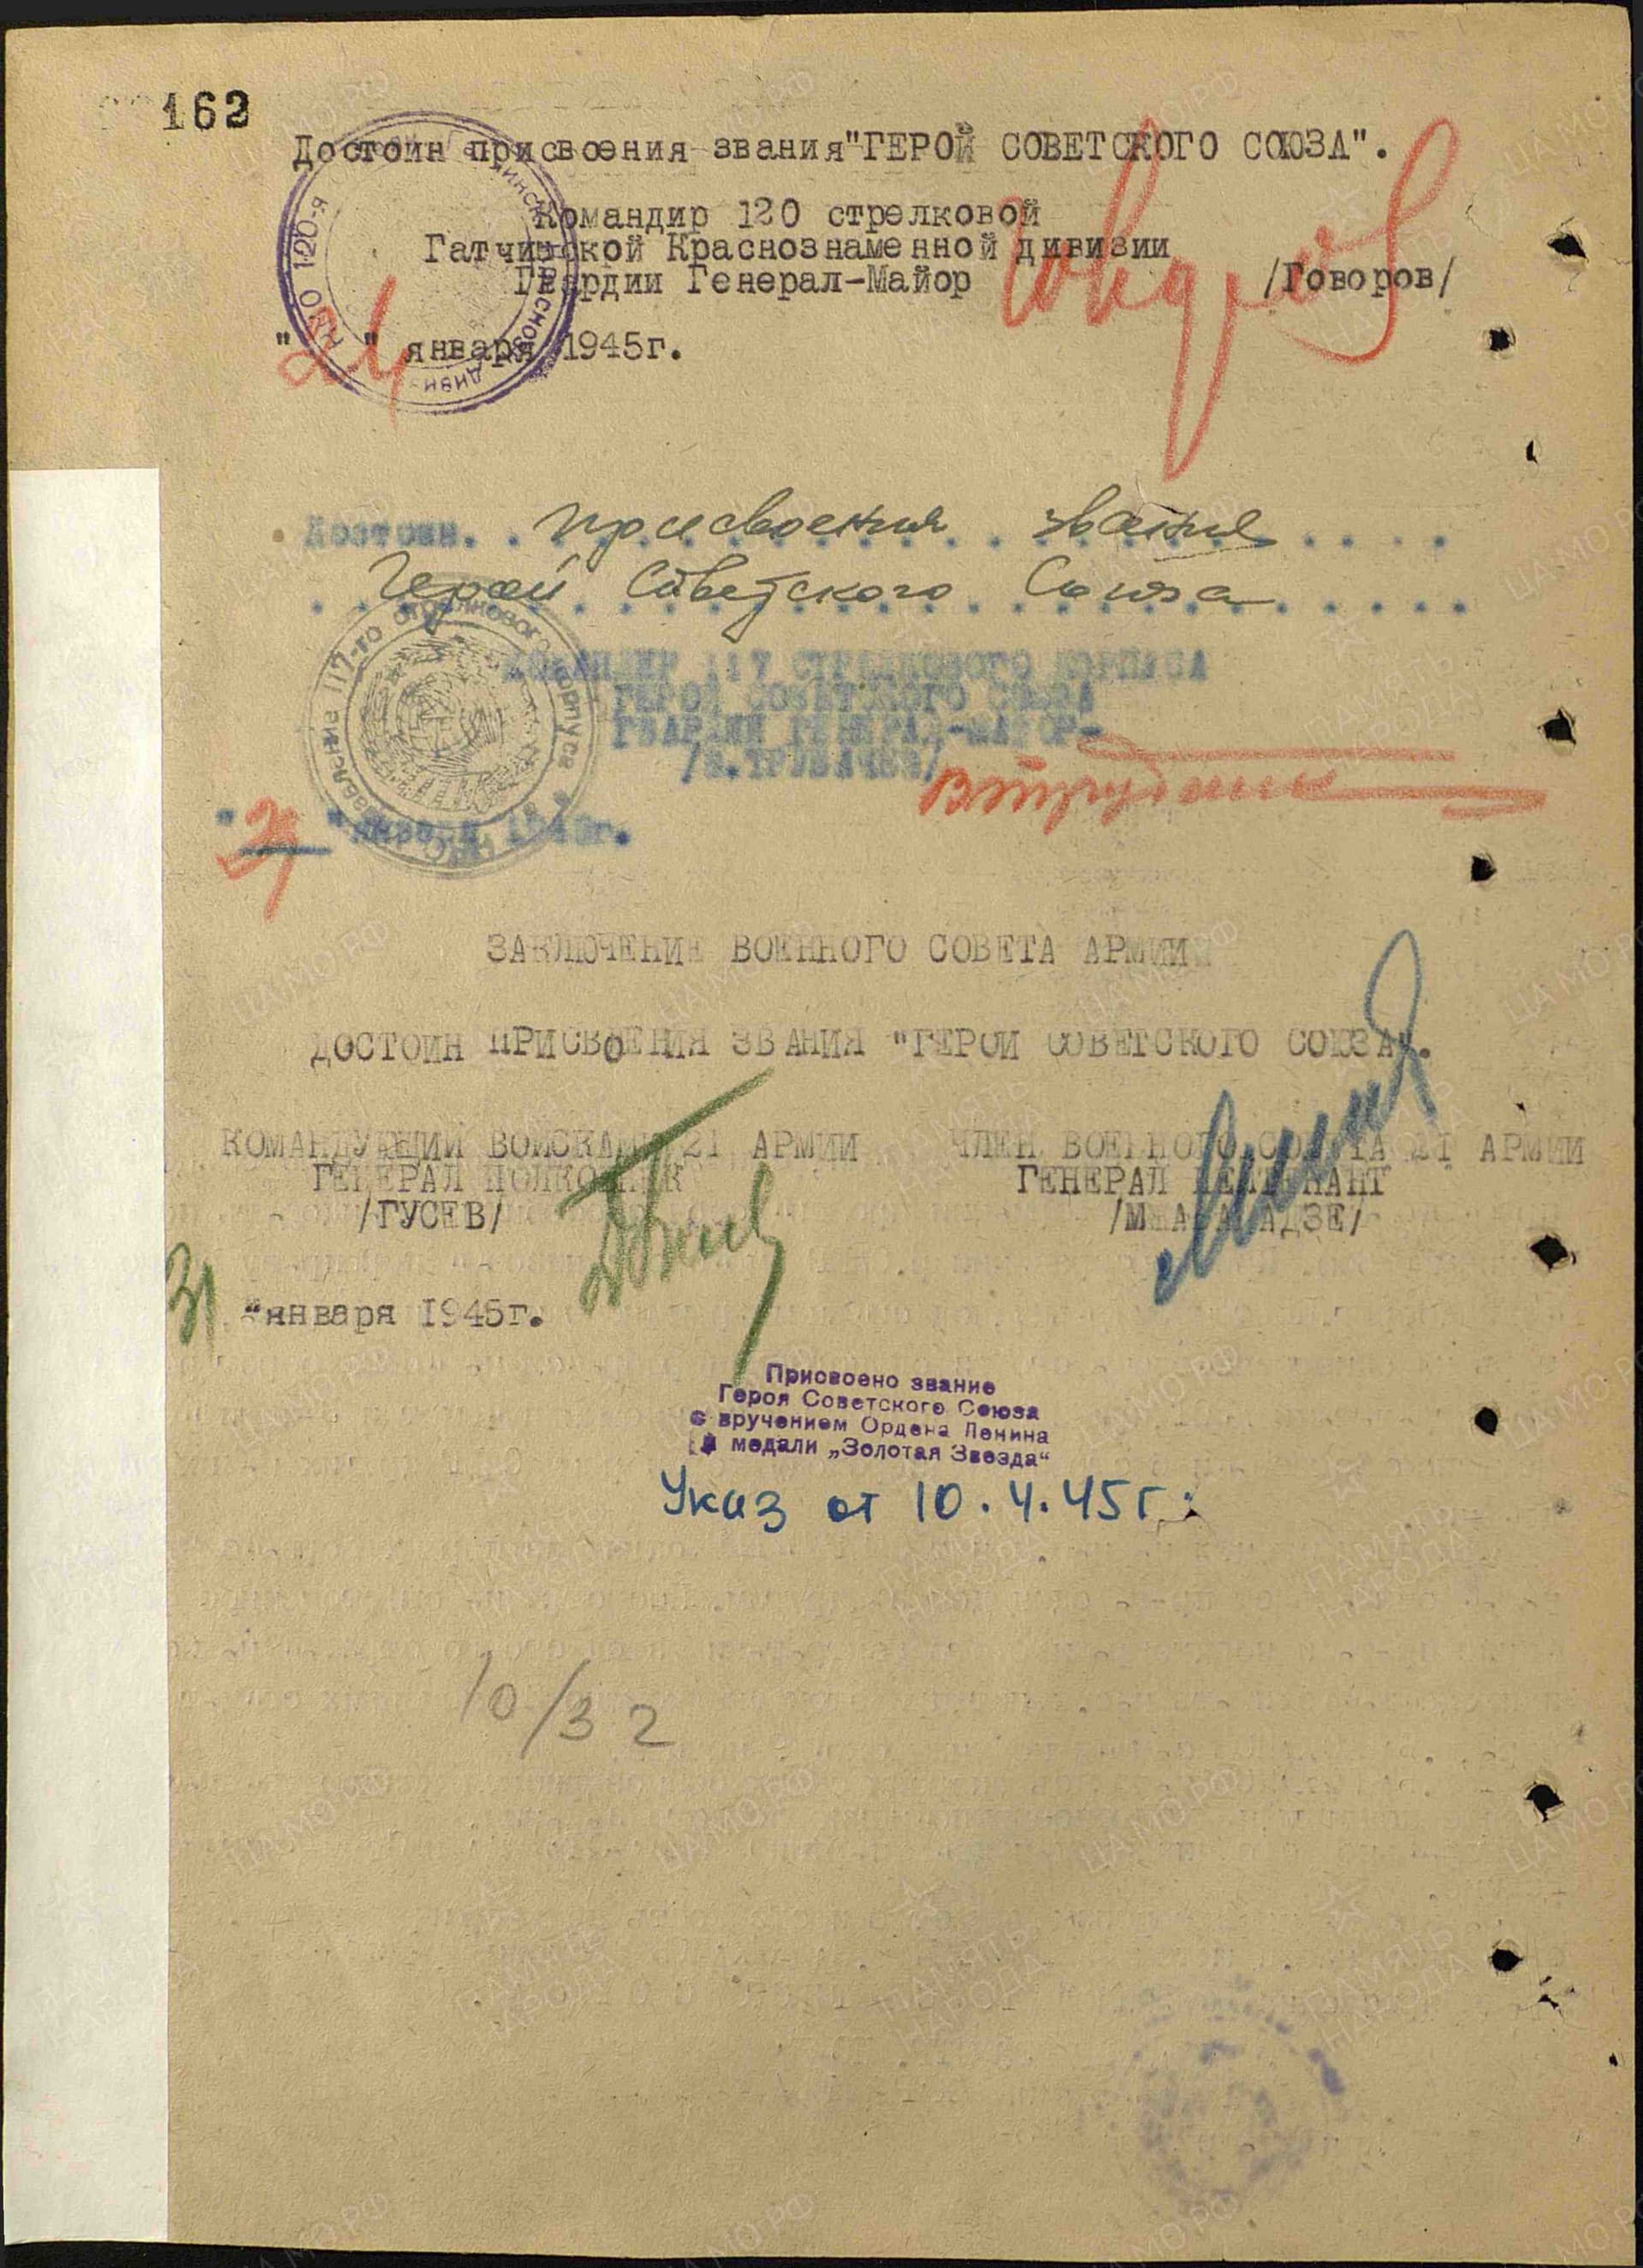 162
Достоин присвоения звания "ГЕРОЙ СОВЕТСКОГО СОЮЗА".
Командир 120 стрелковой
Гатчинской Краснознаменной дивизии
Гвардии Генерал-Майор /Говоров/
"24" января 1945г.
Достоин. присвоения звания
Герой Советского Союза
КОМАНДИР 117 СТРЕЛКОВОГО КОРПУСА
ГЕРОЙ СОВЕТСКОГО СОЮЗА
ГВАРДИИ ГЕНЕРАЛ-МАЙОР-
/В.ТРУБАЧЕВ/
"января 1945г.
ЗАКЛЮЧЕНИЕ ВОЕННОГО СОВЕТА АРМИИ
ДОСТОИН ПРИСВОЕНИЯ ЗВАНИЯ "ГЕРОЙ СОВЕТСКОГО СОЮЗА".
КОМАНДУЮЩИЙ ВОЙСКАМИ 21 АРМИИ ЧЛЕН ВОЕННОГО СОВЕТА 21 АРМИИ
ГЕНЕРАЛ ПОЛКОВНИК ГЕНЕРАЛ ЛЕЙТЕНАНТ
/ГУСЕВ/ /МЖАВАНАДЗЕ/
31 "января 1945г.
Присвоено звание
Героя Советского Союза
с вручением Ордена Ленина
и медали „Золотая Звезда“
Указ от 10.4.45г.
10/32